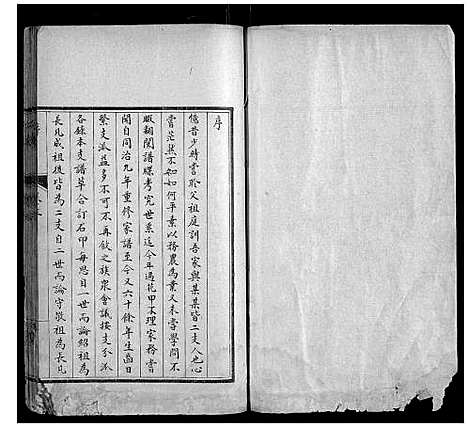 序
憶昔少時嘗聆父祖庭訓吾家與某某皆二支人也心
嘗茫然不知如何平素以務農為業又未嘗學問不
暇翻閱譜牒考究世系迄今年過花甲不理家務嘗
閱自同治九年重修家譜至今又六十餘年生齒日
繁支派益多不可不再敘之族眾會議按支分派
各錄本支譜草合訂石印每思自一世而論紹祖為
長凡成祖後皆為二支自二世而論守敬祖為長凡